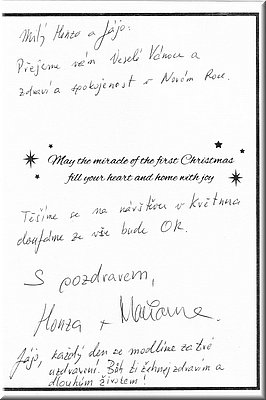 Milý Honzo a Jájo:
Přejeme vám Veselé Vánoce a
zdraví a spokojenost v Novém Roce.
May the miracle of the first Christmas
fill your heart and home with joy
Těšíme se na návštěvu v Květnu a
doufáme že vše bude OK.
S pozdravem,
Honza + Marianne.
Jájo, každý den se modlíme za tvé
uzdravení. Bůh ti žehnej zdravím a
dlouhým životem!